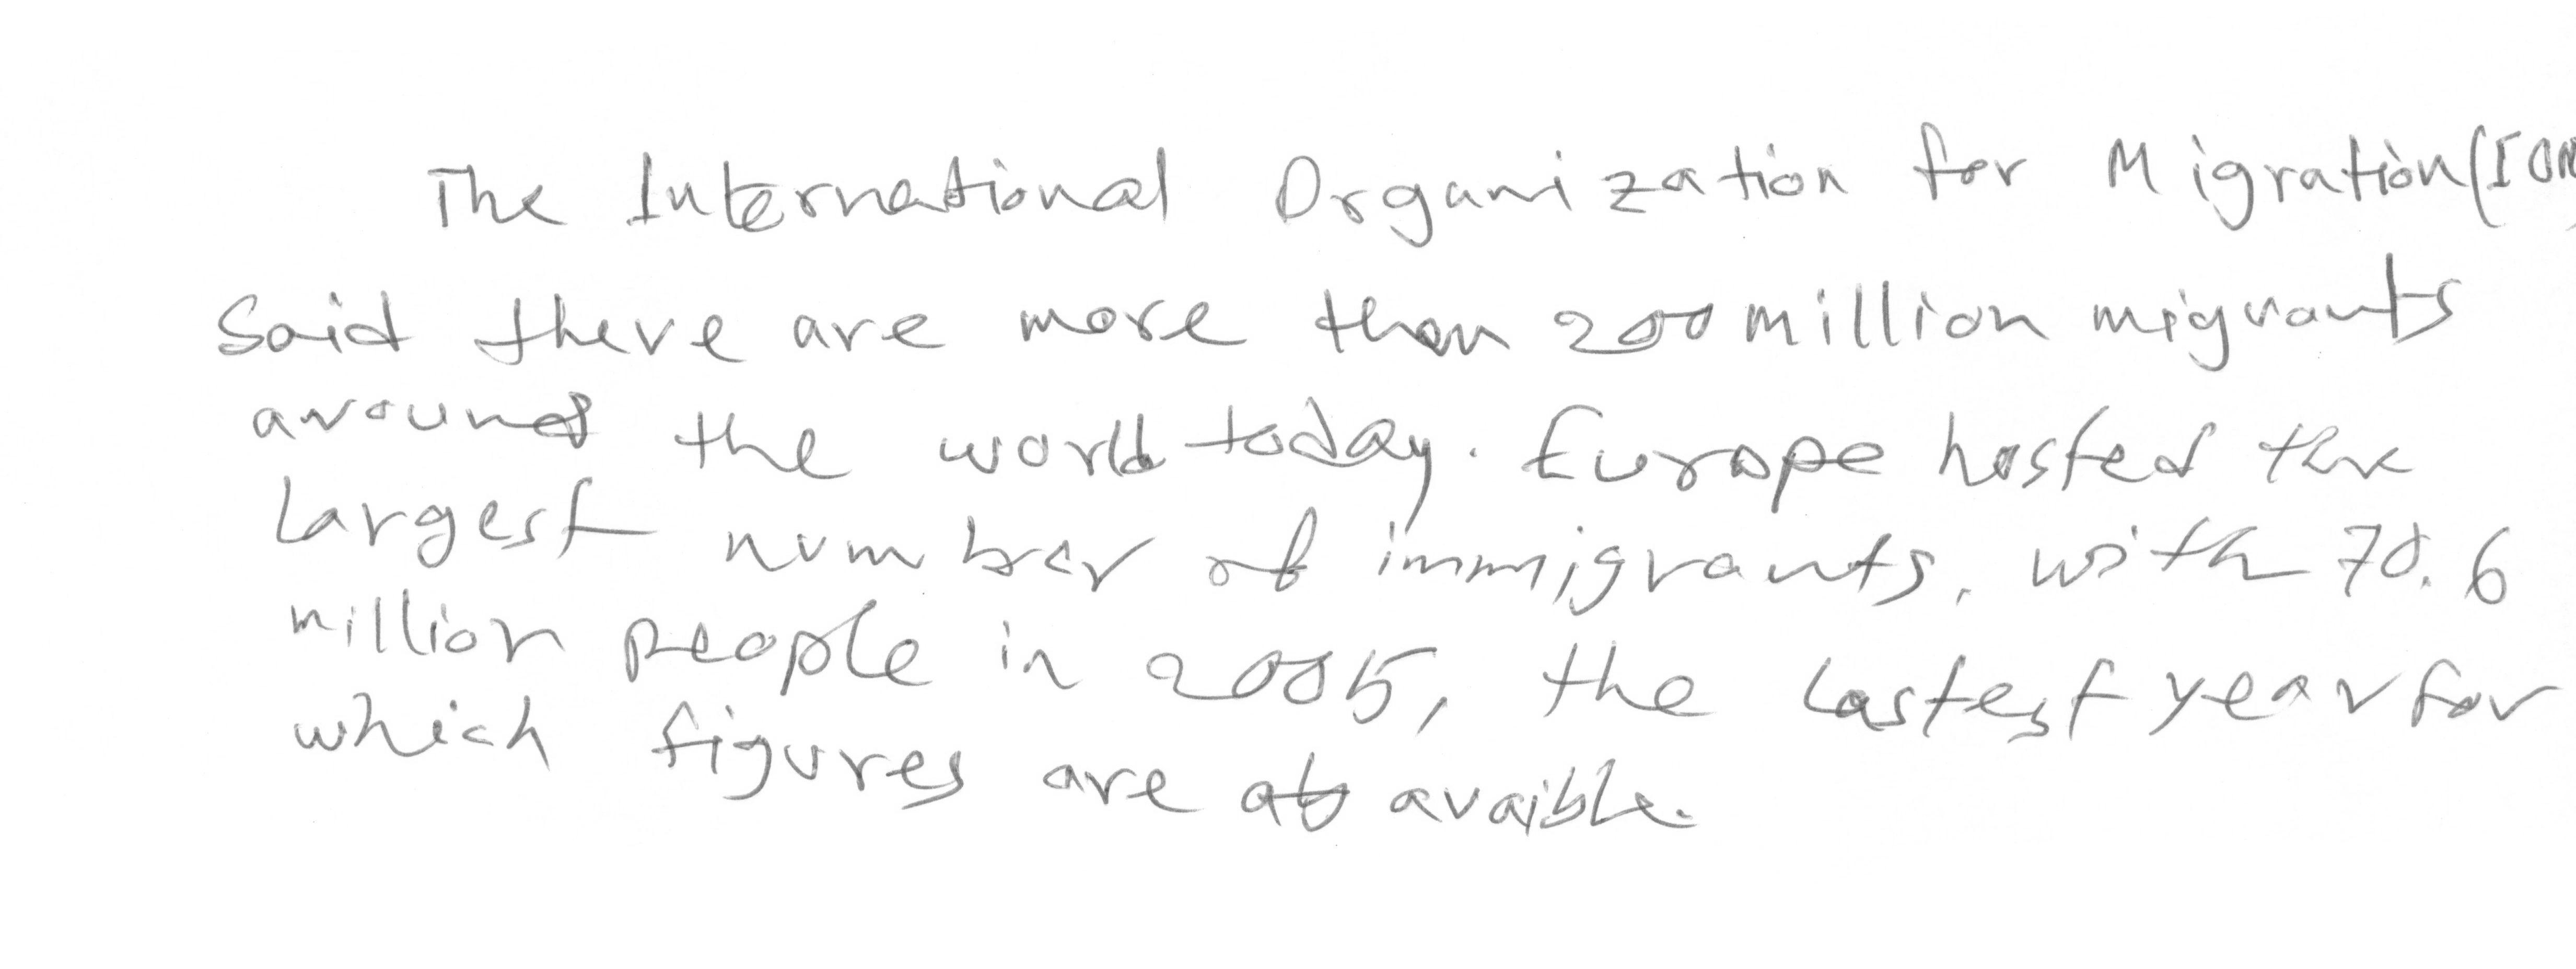 The International Organization for Migration (IOM
Said there are more than 200 million migrants
around the world today. Europe hosted the
largest number of immigrants, with 70.6
million people in 2005, the lastest year for
which figures are avaible.